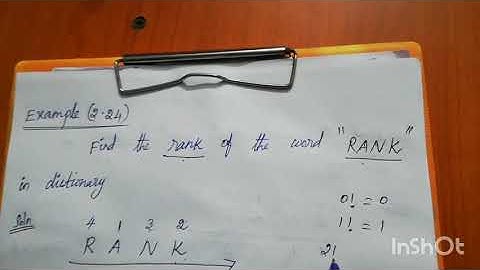 Example (2.24)
Find the rank of the word "RANK"
in dictionary
0! = 0
Soln 4 1 3 2
1! = 1
R A N K
2!
InShOt